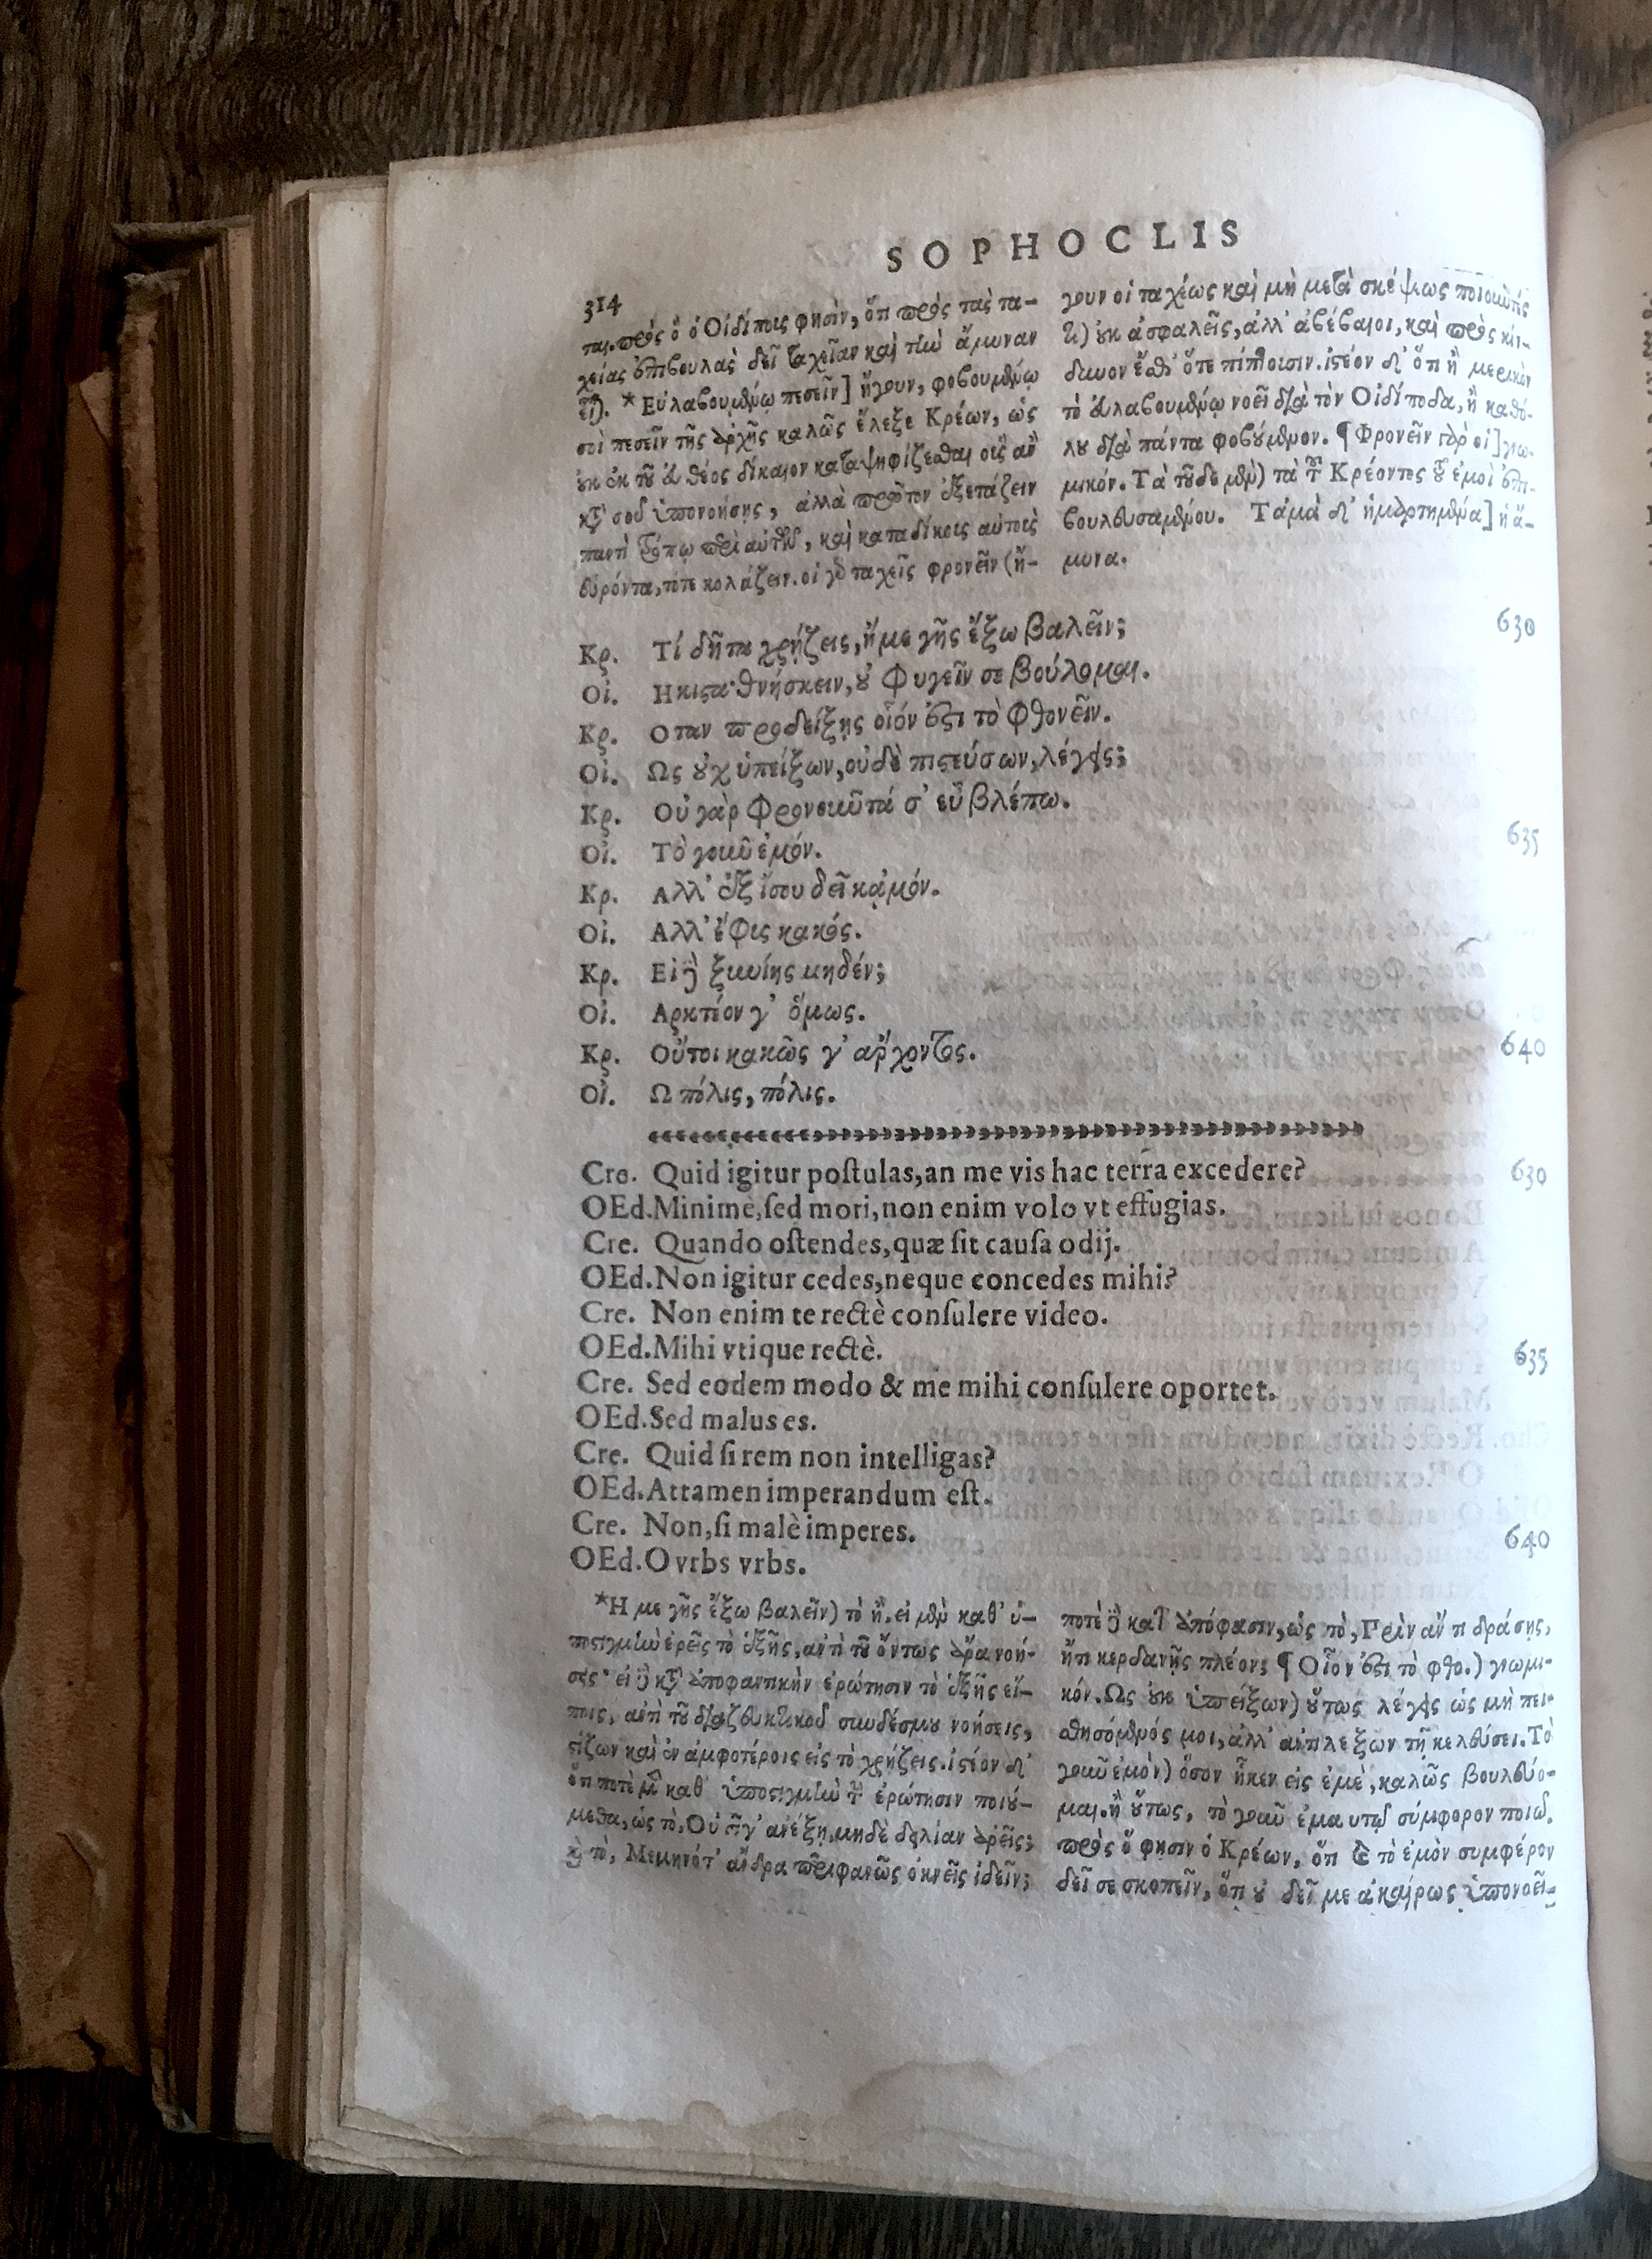 SOPHOCLIS
314
ται. πρὸς ὃ ὁ Οἰδίπους φησὶν, ὅτι πρὸς τὰς τα-
χείας ἐπιβουλὰς δεῖ ταχεῖαν καὶ τὴν ἄμυναν
εἶναι. *Εὐλαβουμένῳ πεσεῖν] ἤγουν, φοβουμένῳ
σοὶ πεσεῖν τῆς ἀρχῆς καλῶς ἔλεξε Κρέων, ὡς
οὐκ ἐκ τοῦ εὐθέος δίκαιον καταψηφίζεσθαι οἷς ἂν
κατὰ σοῦ ὑπονοήσῃς, ἀλλὰ πρῶτον ἐξετάζειν
παντὶ τρόπῳ περὶ αὐτῶν, καὶ καταδίκοις αὐτοὺς
εὑρόντα, τότε κολάζειν. οἱ γὰρ ταχεῖς φρονεῖν (ἤ-
γουν οἱ ταχέως καὶ μὴ μετὰ σκέψεως ποιοῦντές
τι) οὐκ ἀσφαλεῖς, ἀλλ' ἀβέβαιοι, καὶ πρὸς κίν-
δυνον ἔσθ' ὅτε πίπτουσιν. ἰστέον δ' ὅτι ἢ μερικὸν
τὸ εὐλαβουμένῳ νοεῖ διὰ τὸν Οἰδίποδα, ἢ καθό-
λου διὰ πάντα φοβούμενον. ¶ Φρονεῖν γὰρ οἱ] γνω-
μικόν. Τὰ τοῦδε μὲν) τὰ τοῦ Κρέοντος τοῦ ἐμοὶ ἐπι-
βουλευσαμένου. Τἀμὰ δ' ἡμαρτημένα] ἡ ἄ-
μυνα.
Κρ. Τί δῆτα χρῄζεις, ἤ με γῆς ἔξω βαλεῖν; 630
Οἰ. Ηκιστα· θνήσκειν, οὐ φυγεῖν σε βούλομαι.
Κρ. Οταν προδείξῃς οἷόν ἐστι τὸ φθονεῖν.
Οἰ. Ως οὐχ ὑπείξων, οὐδὲ πιστεύσων, λέγεις;
Κρ. Οὐ γὰρ φρονοῦντά σ' εὖ βλέπω.
Οἰ. Τὸ γοῦν ἐμόν. 635
Κρ. Αλλ' ἐξ ἴσου δεῖ κᾀμόν.
Οἰ. Αλλ' ἔφυς κακός.
Κρ. Εἰ δὲ ξυνίης μηδέν;
Οἰ. Αρκτέον γ' ὅμως.
Κρ. Οὔτοι κακῶς γ' ἄρχοντος. 640
Οἰ. Ω πόλις, πόλις.
Cre. Quid igitur poſtulas, an me vis hac terra excedere? 630
OEd. Minimè, ſed mori, non enim volo vt effugias.
Cre. Quando oſtendes, quæ ſit cauſa odij.
OEd. Non igitur cedes, neque concedes mihi?
Cre. Non enim te rectè conſulere video.
OEd. Mihi vtique rectè. 635
Cre. Sed eodem modo & me mihi conſulere oportet.
OEd. Sed malus es.
Cre. Quid ſi rem non intelligas?
OEd. Attamen imperandum eſt.
Cre. Non, ſi malè imperes. 640
OEd. O vrbs vrbs.
*Η με γῆς ἔξω βαλεῖν) τὸ ἢ, εἰ μὲν καθ' ὑ-
ποστιγμὴν ἐρεῖς τὸ ἑξῆς, ἀντὶ τοῦ ὄντως ἄρα νοή-
σεις· εἰ δὲ κατ' ἀποφαντικὴν ἐρώτησιν τὸ ἑξῆς εἴ-
ποις, ἀντὶ τοῦ διαζευκτικοῦ συνδέσμου νοήσεις,
στίζων καὶ ἐν ἀμφοτέροις εἰς τὸ χρῄζεις. ἰστέον δ'
ὅτι ποτὲ μὲν καθ' ὑποστιγμὴν τὴν ἐρώτησιν ποιού-
μεθα, ὡς τὸ, Οὐ σῖγ' ἀνέξῃ, μηδὲ δειλίαν ἀρεῖς;
καὶ τὸ, Μεμηνότ' ἄνδρα περιφανῶς ὀκνεῖς ἰδεῖν;
ποτὲ δὲ κατ' ἀπόφασιν, ὡς τὸ, Πρὶν ἄν τι δράσῃς,
ἤ τι κερδανῇς πλέον; ¶ Οἷον ἐστι τὸ φθο.) γνωμι-
κόν. Ως οὐκ ὑπείξων) οὕτως λέγεις ὡς μὴ πει-
σθησόμενός μοι, ἀλλ' ἀντιλέξων τῇ κελεύσει. Τὸ
γοῦν ἐμὸν) ὅσον ἧκεν εἰς ἐμὲ, καλῶς βουλεύο-
μαι. ἢ οὕτως, τὸ γοῦν ἐμαυτῷ σύμφορον ποιῶ.
πρὸς ὅ φησιν ὁ Κρέων, ὅτι καὶ τὸ ἐμὸν συμφέρον
δεῖ σε σκοπεῖν, ὅτι οὐ δεῖ με ἀκαίρως ὑπονοεῖ-